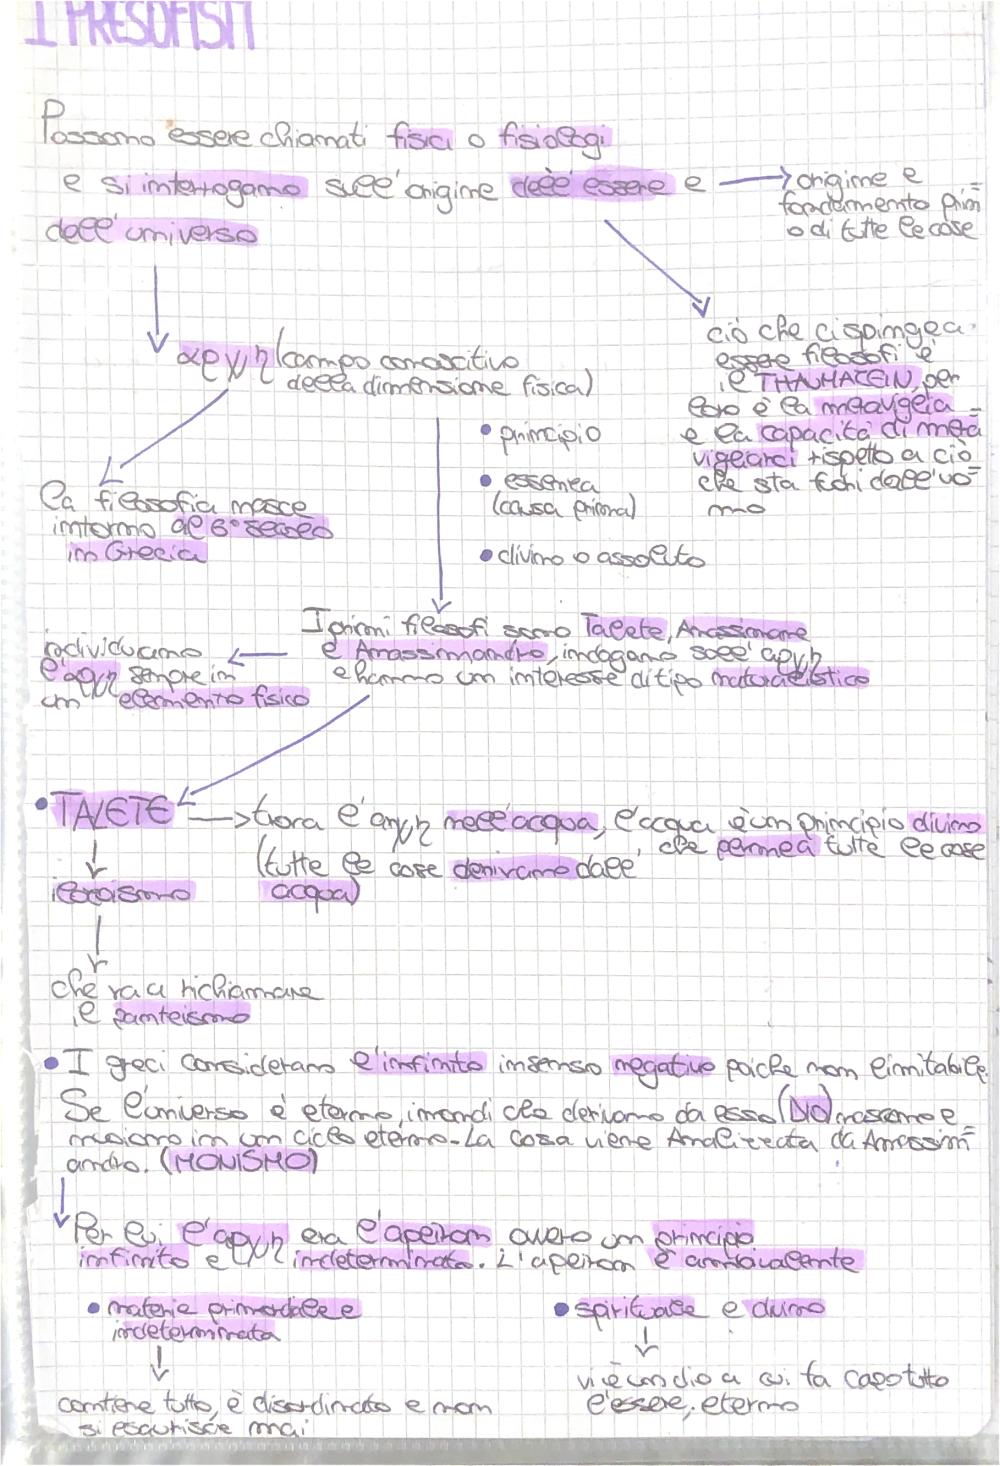 I PRESOFISTI
Possono essere chiamati fisici o fisiologi
e si interrogano sull'origine dell'essere e
dell'universo
origine e
fondamento prim=
o di tutte le cose
ciò che ci spinge a
essere filosofi è
il THAUMAZEIN, per
loro è la meraviglia
e la capacità di mera=
vigliarci rispetto a ciò
che sta fuori dall'uo=
mo
αρχη (campo conoscitivo
della dimensione fisica)
• principio
• essenza
(causa prima)
• divino o assoluto
la filosofia nasce
intorno al 6° secolo
in Grecia
I primi filosofi sono Talete, Anassimene
e Anassimandro, indagano sull'αρχη
e hanno un interesse di tipo naturalistico
individuano
l'αρχη sempre in
un elemento fisico
• TALETE
trova l'αρχη nell'acqua, l'acqua è un principio divino
che permea tutte le cose
(tutte le cose derivano dall'
acqua)
ilozoismo
che va a richiamare
il panteismo
• I greci considerano l'infinito in senso negativo poiché non limitabile
Se l'universo è eterno, i mondi che derivano da esso (NO) nascono e
muoiono in un ciclo eterno. La cosa viene Analizzata da Anassim=
andro. (MONISMO)
Per lui l'αρχη era l'apeiron ovvero un principio
infinito e indeterminato. L'apeiron è ambivalente
• materia primordiale e
indeterminata
• spirituale e divino
contiene tutto, è disordinato e non
si esaurisce mai
vi è un dio a cui fa capo tutto
l'essere, eterno